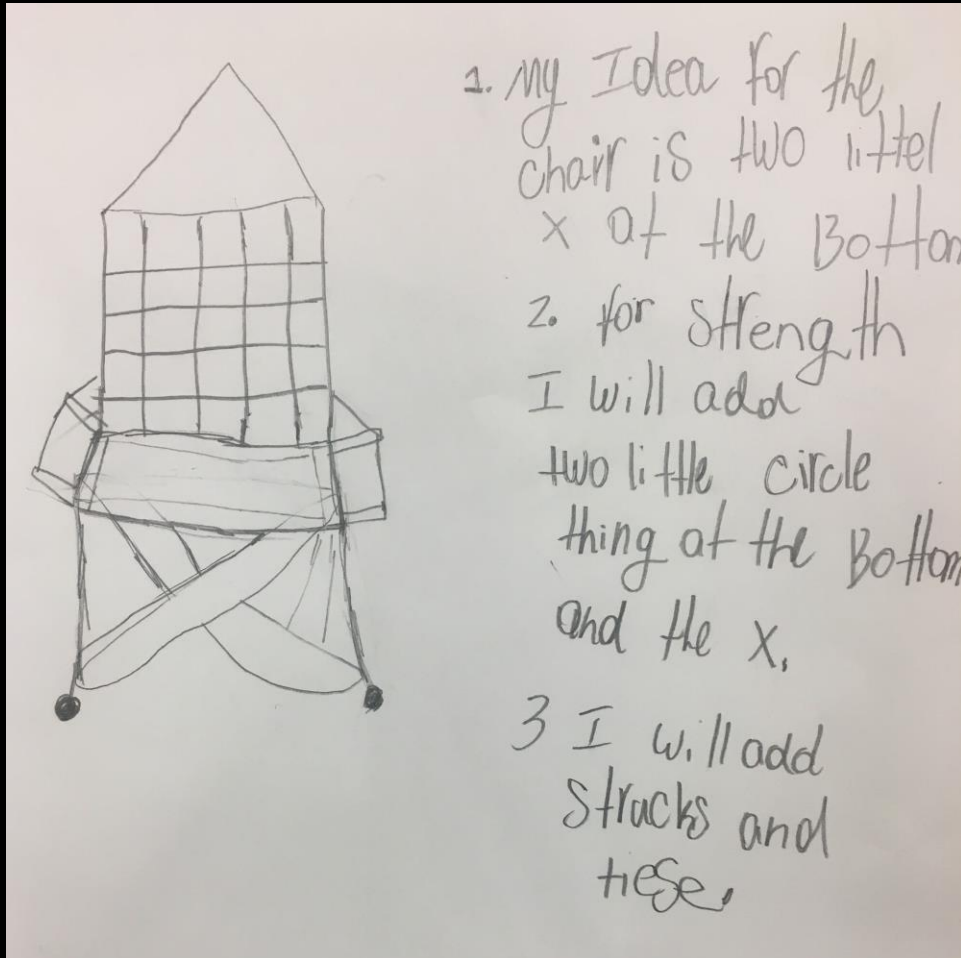 1. My Idea for the
chair is two littel
x at the Bottom
2. for strength
I will add
two little circle
thing at the Bottom
and the x.
3 I will add
strucks and
tiese.